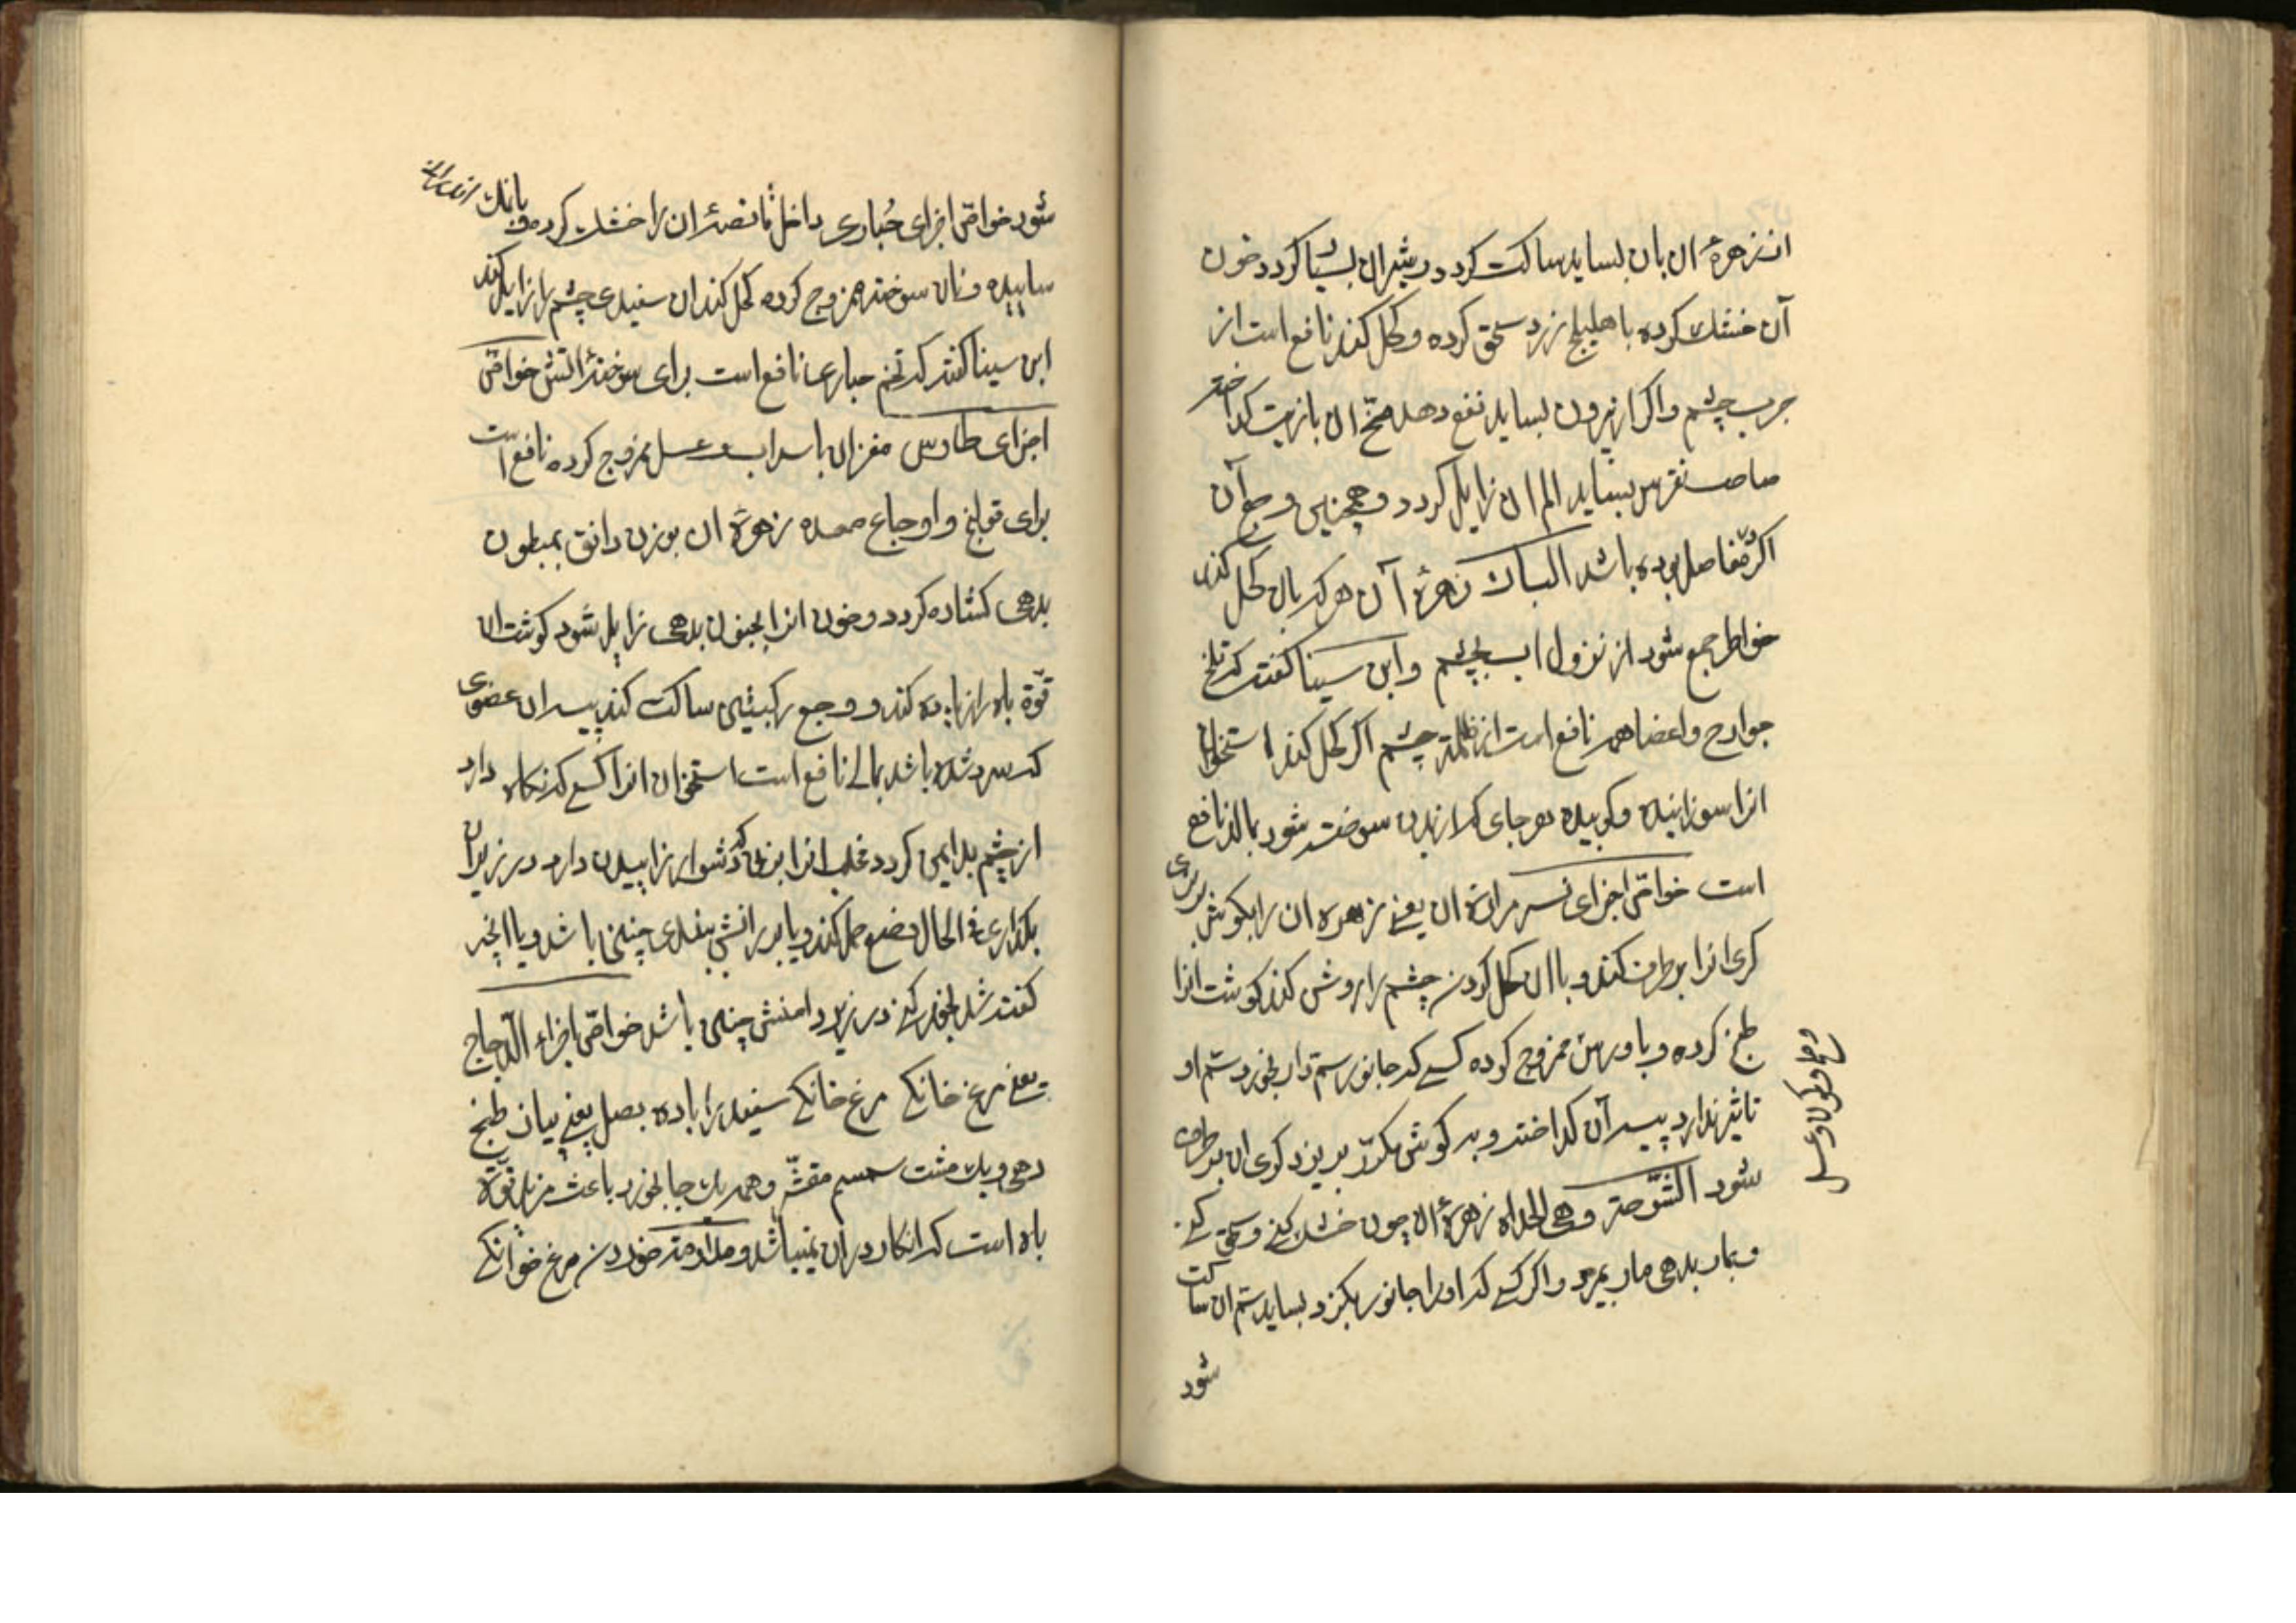 از زهرهٔ ان بان بساید ساکت کردد ریش ان بسیا کردد خون
آن خشك کرده با هلیلج زرد سحق کرده و کحل کند نافع است از
جرب چشم و اکر از بیرون بساید نفع دهد مخ ان بازیت کداخته
صاحب نقرس بساید الم ان زایل کردد و همچنین وجع آن
اکر مفاصل بوده باشد الباك زهرهٔ آن هر که بان کحل کند
خواطر جمع شود از نزول اب بچشم و ابن سینا کفت که تلخ
جوارح و اعضا همه نافع است از ظلمة چشم اکر کحل کند استخوان
انرا سوزانیده و کوبیده هر جای که از بدن سوخته شود بمالند نافع
است خواص اجزای نسر مرارة ان یعنی زهره ان را بکوش
کری انرا برطرف کند و با ان کحل کردن چشم را روشن کند کوشت انرا
طبخ کرده و با ورس ممزوج کرده کسی که جانور سم دار بخورد سم او
تاثیر ندارد پیه آن کداخته و بر کوش مکرر بریزد کری ان برطرف
شود الشوحة و هی الحداه زهرهٔ ان چون خشك کنی و سحق کنی
و بمار بدهی مار بمیرد و اکر کسی که او را جانور بکزد بساید سم ان ساکت
شود
شود خواص اجزای حباری داخل قانصهٔ ان را خشك کرده با نمك
ساییده و نان سوخته ممزوج کرده کحل کند ان سفیدی چشم را زایل کند
ابن سینا کفته که تخم حباری نافع است برای سوختهٔ اتش خواص
اجزای طاوس مغز ان با سداب و عسل ممزوج کرده نافع است
برای قولنج و اوجاع معده زهرهٔ ان بوزن دانق بمبطون
بدهی کشاده کردد و خون انرا بمجنون بدهی زایل شود کوشت ان
قوّة باه را زیاده کند و وجع رکبتین ساکت کند پیه ان عضوی
که سرد شده باشد بمالی نافع است استخوان انرا کسی که نکاه دارد
از چشم بد ایمن کردد مخلب انرا بزنی که دشوار زاییدن دارد در زیر ان
بکذاری فی الحال وضع حمل کند و یا بر رانش ببندی چنین باشد و یا انچه
کفته شد بخور کنی در زیر دامنش چنین باشد خواص اجزاء الدجاج
یعنی مرغ خانکی مرغ خانکی سفید را با ده بصل یعنی پیاز طبخ
دهی و یك مشت سمسم مقشّر و همه یك جا بخورد باعث مزید قوّة
باه است که انکار در ان نمیباشد و مداومة خوردن مرغ خوانکی